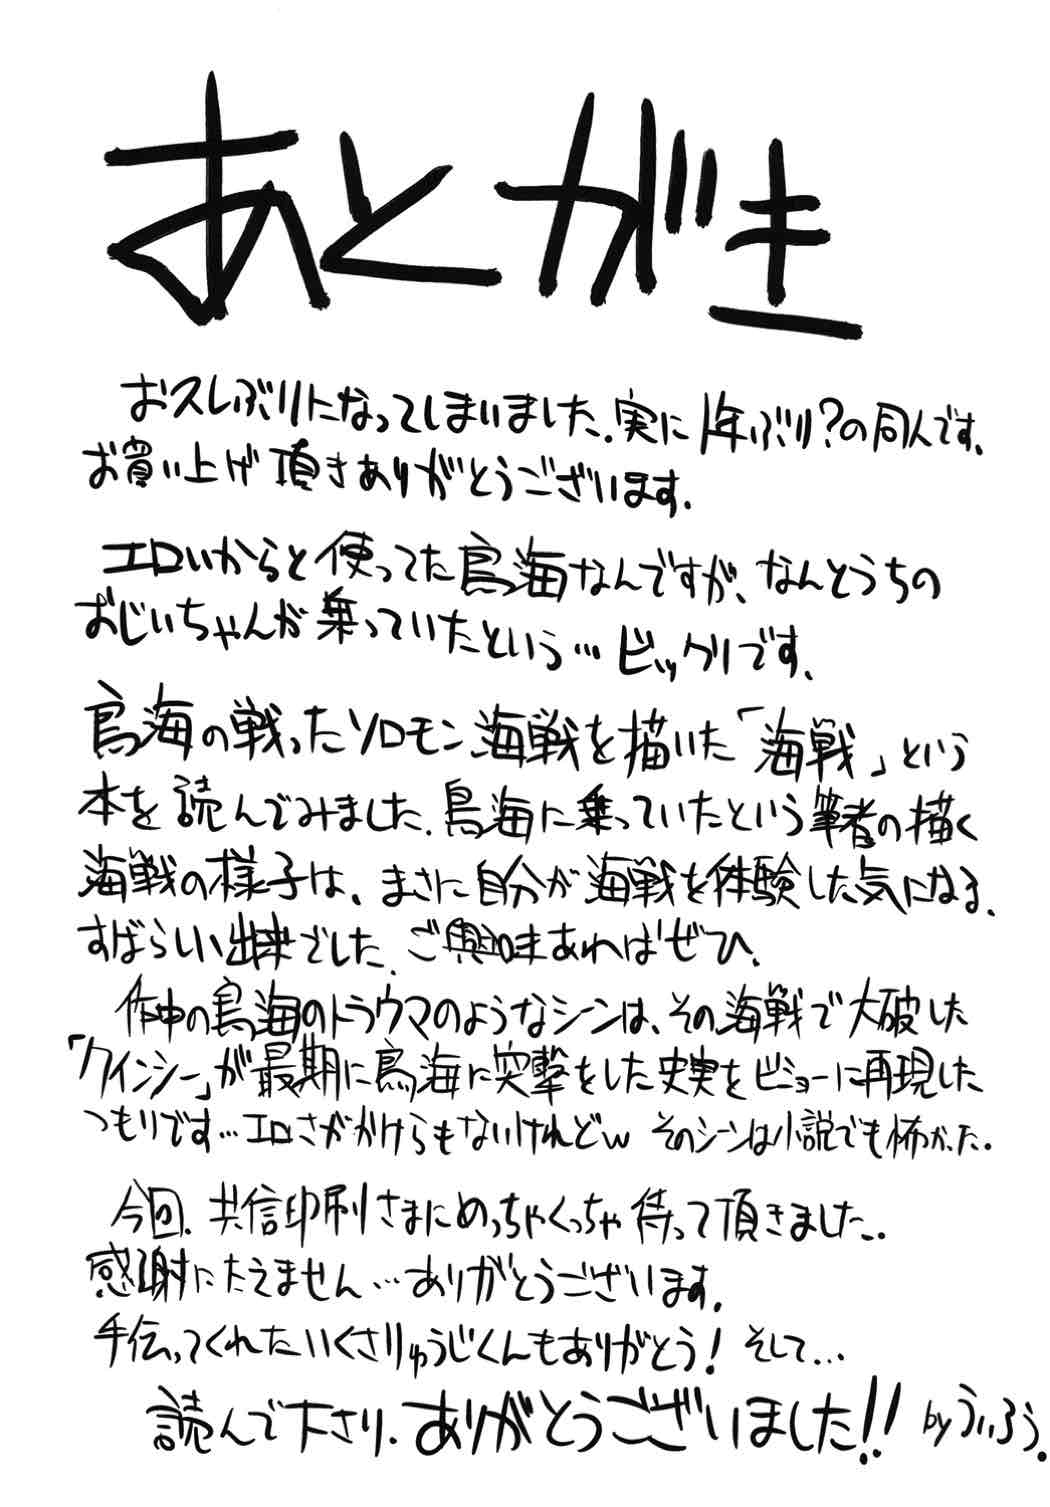 あとがき
お久しぶりになってしまいました.実に1年ぶり?の同人です.
お買い上げ頂きありがとうございます.
エロいからと使ってた鳥海なんですが、なんとうちの
おじいちゃんが乗っていたという…ビックリです.
鳥海の戦ったソロモン海戦を描いた「海戦」という
本を読んでみました.鳥海に乗っていたという筆者の描く
海戦の様子は、まさに自分が海戦を体験した気になる.
すばらしい出来でした.ご興味あればぜひ.
作中の鳥海のトラウマのようなシーンは、その海戦で大破した
「クインシー」が最期に鳥海に突撃をした史実をビミョーに再現した
つもりです…エロさがかけらもないけれどw そのシーンは小説でも怖かった.
今回、共信印刷さまにめっちゃくっちゃ待って頂きました..
感謝にたえません…ありがとうございます.
手伝ってくれたいくさりゅうじくんもありがとう! そして...
読んで下さり、ありがとうございました!! byうぃろう.